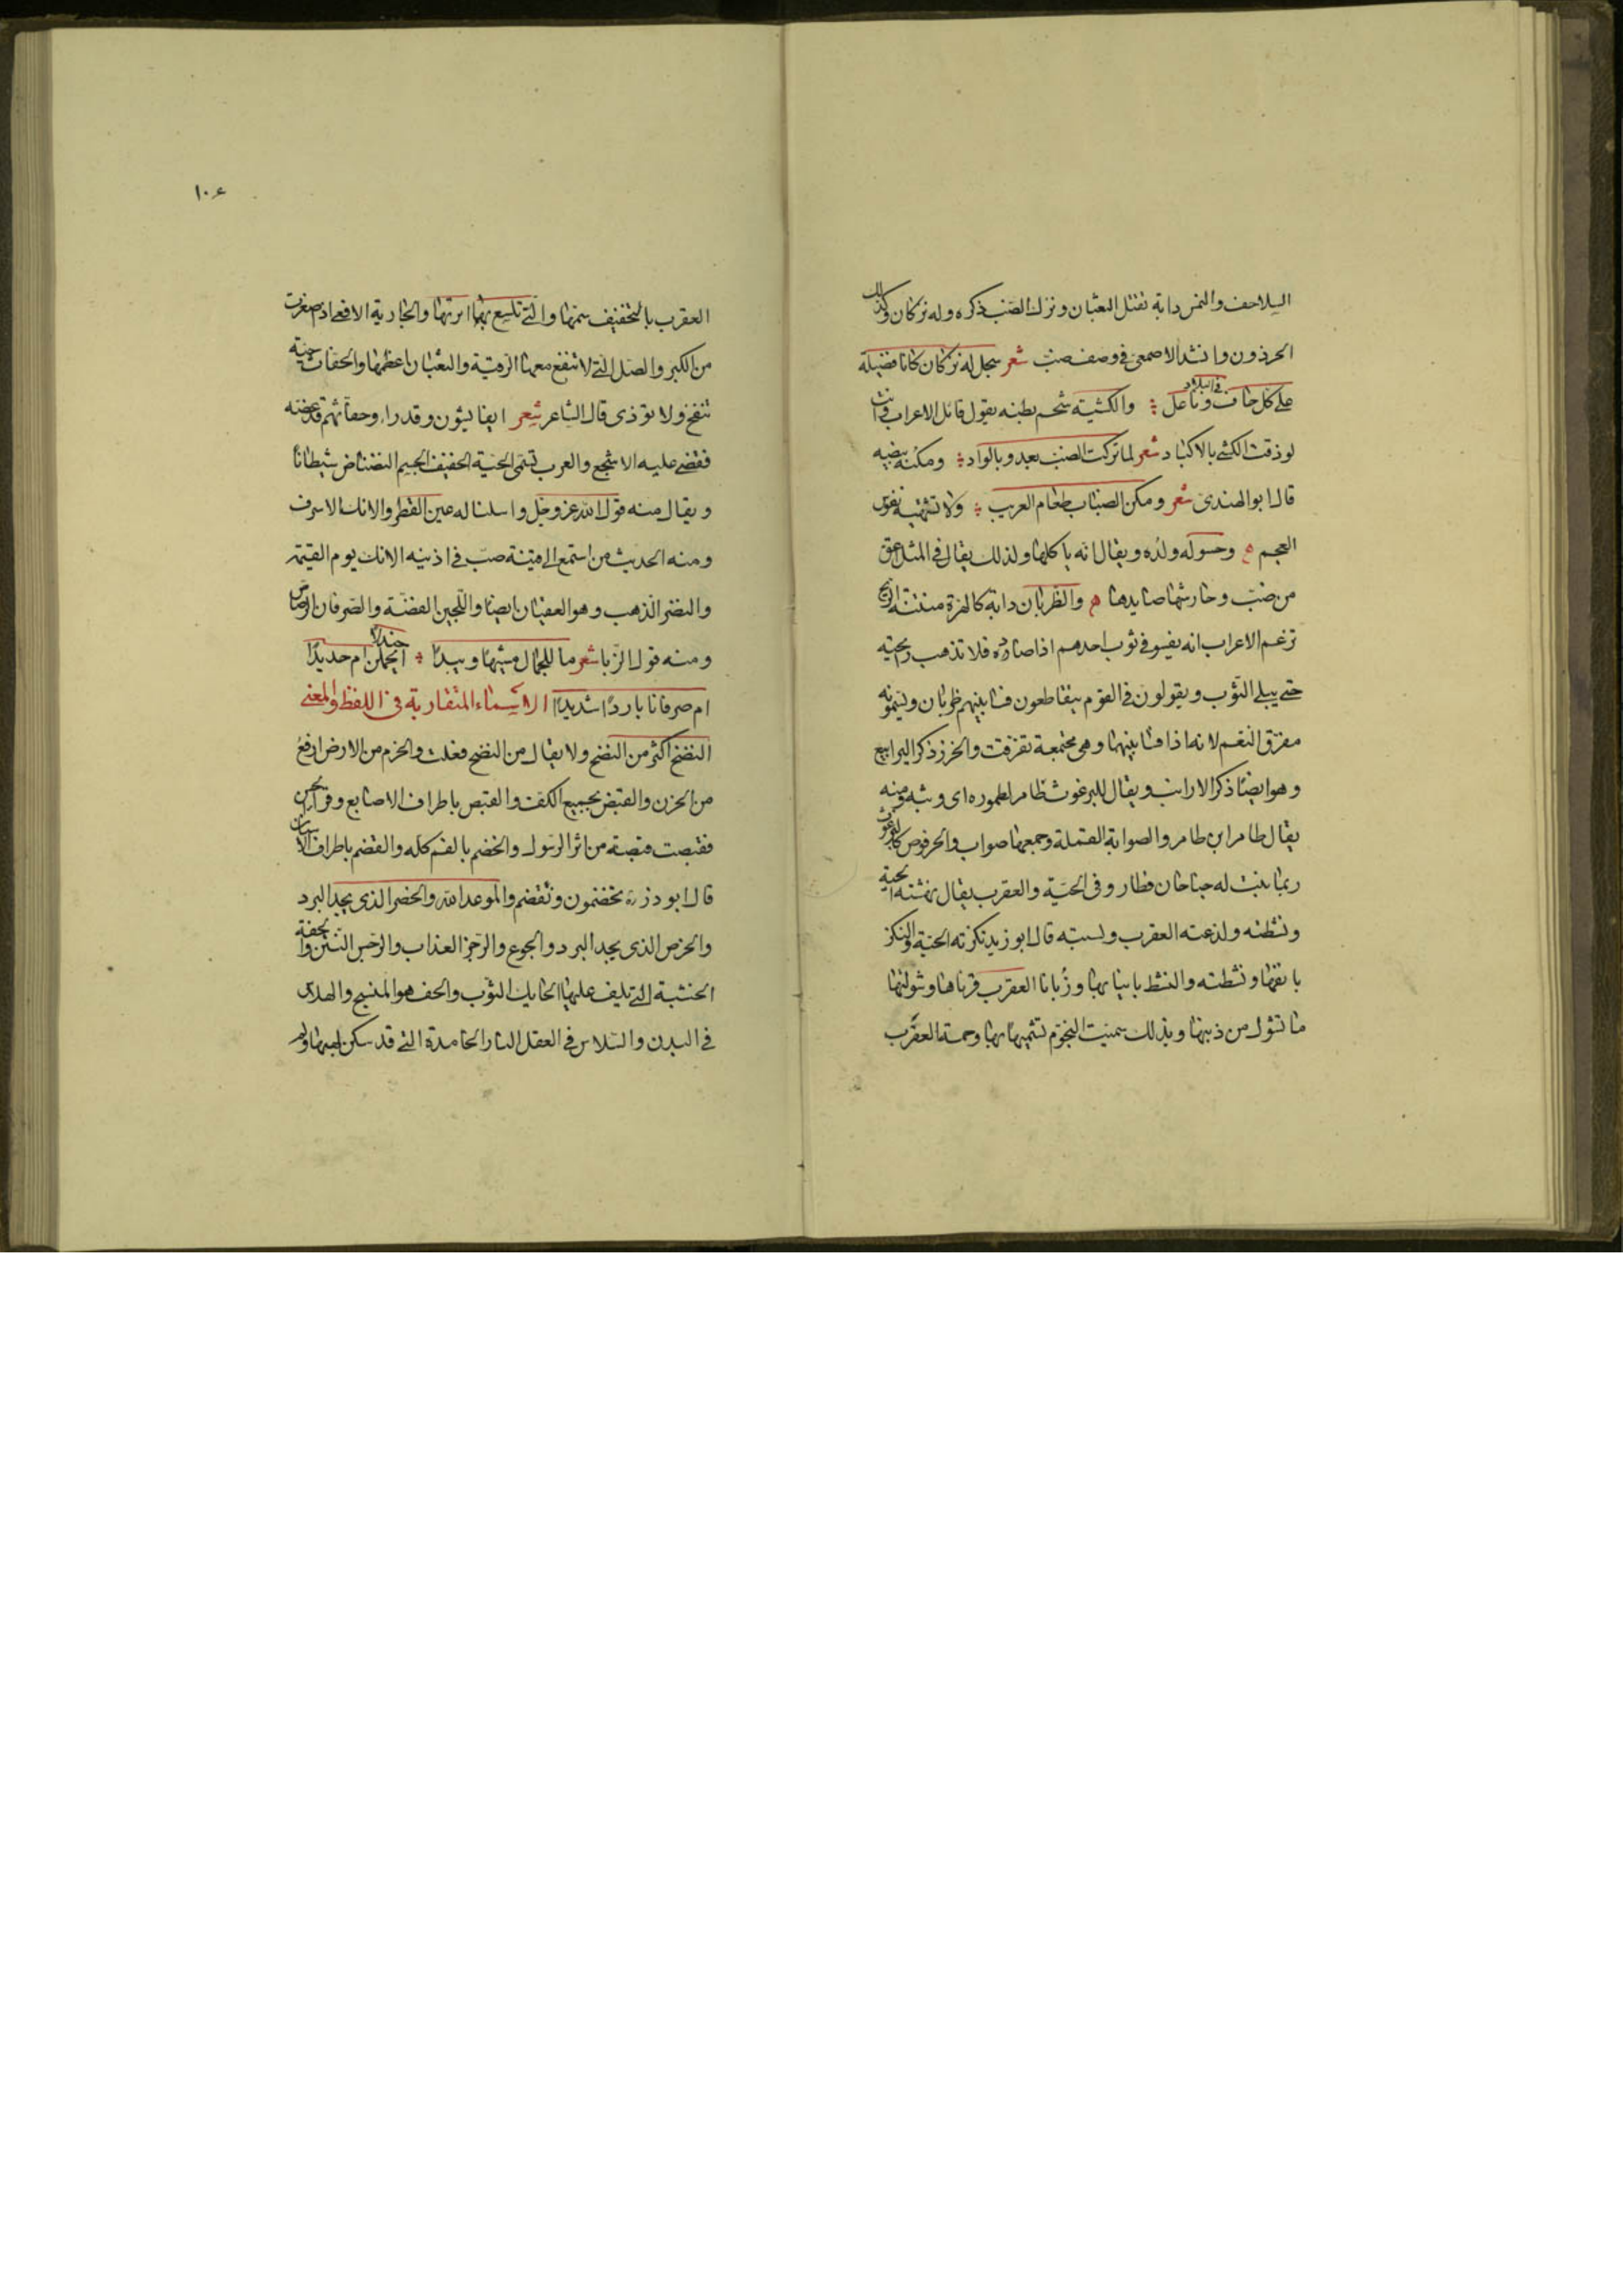 السلاحف والنمس دابة تقتل الثعبان ونزك الضب ذكره وله نزكان وكذلك
الحرذون وانشد الاصمعى فى وصف ضب شعر سبحل له نزكان كانا فضيلة
على كل حاف فى البلاد وناعل والكشية شحم بطنه يقول قائل الاعراب وانت
لو ذقت الكشى بالاكباد شعر لما تركت الضب يعدو بالواد ومكنه بيضه
قال ابو الهندى شعر ومكن الضباب طعام العريب ولا تشتهيه نفوس
العجم وحسوله ولده ويقال انه ياكلها ولذلك يقال فى المثل اعق
من ضب وحارشها صايدها والظربان دابة كالهرة منتنة الريح
تزعم الاعراب انه يفسو فى ثوب احدهم اذا صاده فلا تذهب رايحته
حتى يبلى الثوب ويقولون فى القوم يتقاطعون فسا بينهم ظربان ويسمونه
مفرق النعم لانه اذا فسا بينها وهى مجتمعة تفرقت والخزز ذكر اليرابيع
وهو ايضا ذكر الارانب ويقال للبرغوث طامر لطموره اى وثبه ومنه
يقال طامر ابن طامر والصوابة القملة وجمعها صواب والحرقوص كالبرغوث
ربما ينبت له جناحان فطار وفى الحية والعقرب يقال نهشته الحية
ونشطته ولذعته العقرب ولسبته قال ابو زيد نكزته الحية والنكز
بانفها ونشطته والنشط بانيابها وزبانا العقرب قرناها وشولتها
ما تشول من ذنبها وبذلك سميت النجوم تشبيها بها وحمة العقرب
١٠٤
العقرب بالتخفيف سمها والتى تلسع بها ابرتها والحارية الافعى اذ صغرت
من الكبر والصل التى لا تنفع معها الرقية والثعبان اعظمها والحفاث حية
تنفخ ولا تؤذى قال الشاعر شعر ايفايشون وقد راء وحفاثهم قد عضه
فقضى عليه الاشجع والعرب تسمى الحية الخفيف الجسم النضناض شيطانا
ويقال منه قول الله عز وجل واسلنا له عين القطر والانك الاسرف
ومنه الحديث من استمع الى قينة صب فى اذنيه الانك يوم القيمة
والنضر الذهب وهو العقيان ايضا واللجين الفضة والصرفان الرصاص
ومنه قول الزبا شعر ما للجمال مشيها وئيدا اجندلا يحملن ام حديدا
ام صرفانا باردا شديدا الاسماء المتقاربة فى اللفظ والمعنى
النضخ اكثر من النضح ولا يقال من النضخ فعلت والحزم من الارض ارفع
من الحزن والقبض بجميع الكف والقبص باطراف الاصابع وقرا الحسن
فقبصت قبصة من اثر الرسول والخضم بالفم كله والقضم باطراف الاسنان
قال ابو ذر تخضمون ونقضم والموعد الله والخصر الذى يجد البرد
والخرص الذى يجد البرد والجوع والرجز العذاب والرجس النتن والحفة
الخشبة التى يلف عليها الحايك الثوب والحف هو المنسج والهلاس
فى البدن والسلاس فى العقل النار الخامدة التى قد سكن لهبها ولم